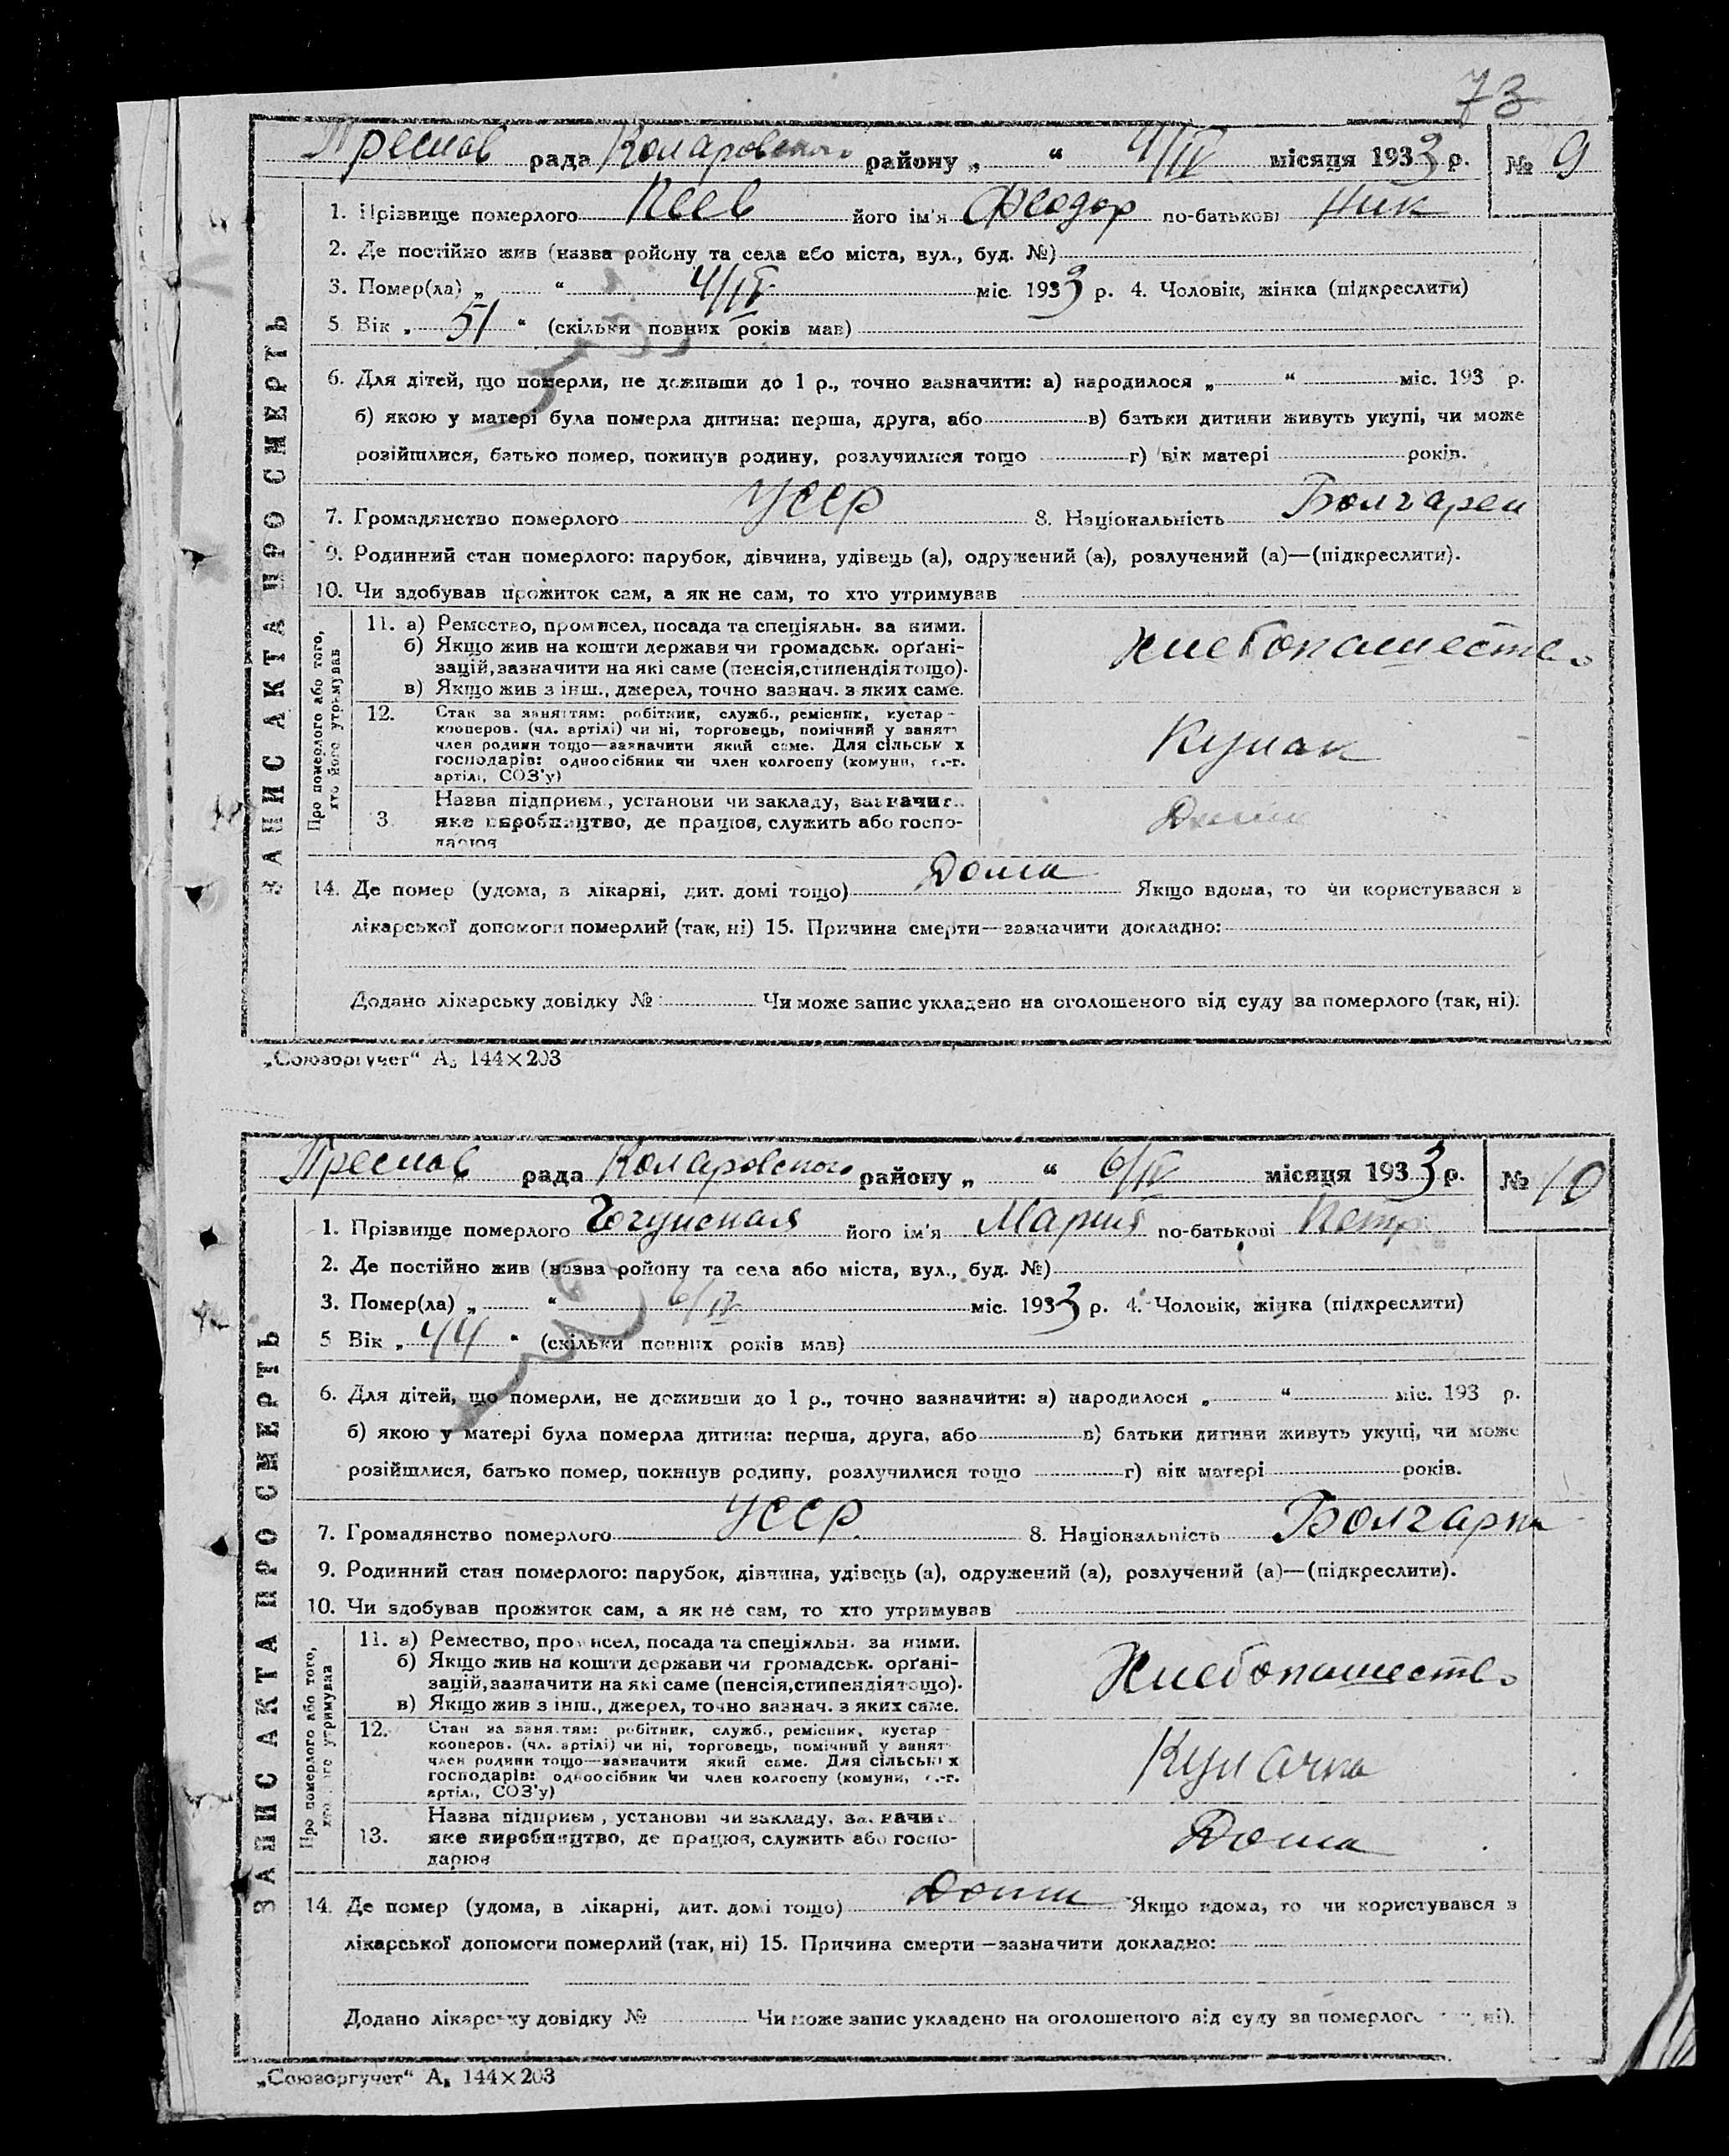 73
Преслав рада Коларовского району „ “ 4/IV місяця 1933 р. № 9
1. Прізвище померлого Пеев його ім'я Феодор по-батькові Ник
2. Де постійно жив (назва ройону та села або міста, вул., буд. №)
3. Помер(ла) „ “ 4/IV міс. 1933 р. 4. Чоловік, жінка (підкреслити)
5 Вік „ 51 “ (скільки повних років мав)
6. Для дітей, що померли, не доживши до 1 р., точно зазначити: а) народилося „ “ міс. 193 р.
б) якою у матері була померла дитина: перша, друга, або в) батьки дитини живуть укупі, чи може
розійшлися, батько помер, покинув родину, розлучилися тощо г) вік матері років.
7. Громадянство померлого УССР 8. Національність Болгарен
9. Родинний стан померлого: парубок, дівчина, удівець (а), одружений (а), розлучений (а)—(підкреслити).
10. Чи здобував прожиток сам, а як не сам, то хто утримував
11. а) Ремество, промисел, посада та спеціяльн. за ними.
б) Якщо жив на кошти держави чи громадськ. орґані-
зацій, зазначити на які саме (пенсія, стипендія тощо).
в) Якщо жив з інш., джерел, точно зазнач. з яких саме.
Хлебопашество
12. Стан за заняттям: робітник, служб., ремісник, кустар -
кооперов. (чл. артілі) чи ні, торговець, помічний у занятт
член родини тощо—зазначити який саме. Для сільськ х
господарів: одноосібник чи член колгоспу (комуни, с.-г.
артілі, СОЗ'у)
Кулак
3. Назва підприєм., установи чи закладу, зазначит..
яке виробництво, де працює, служить або госпо-
дарює
Дома
14. Де помер (удома, в лікарні, дит. домі тощо) Дома Якщо вдома, то чи користувався з
лікарської допомоги померлий (так, ні) 15. Причина смерти—зазначити докладно:
Додано лікарську довідку № Чи може запис укладено на оголошеного від суду за померлого (так, ні).
ЗАПИС АКТА ПРО СМЕРТЬ
Про померлого або того,
хто його утримував
„Союзоргучет“ А₅ 144×203
Преслав рада Коларовского району „ “ 6/IV місяця 1933 р. № 10
1. Прізвище померлого його ім'я Мария по-батькові Петр
2. Де постійно жив (назва ройону та села або міста, вул., буд. №)
3. Помер(ла) „ “ 6/IV міс. 1933 р. 4. Чоловік, жінка (підкреслити)
5 Вік „ 44 “ (скільки повних років мав)
6. Для дітей, що померли, не доживши до 1 р., точно зазначити: а) народилося „ “ міс. 193 р.
б) якою у матері була померла дитина: перша, друга, або в) батьки дитини живуть укупі, чи може
розійшлися, батько помер, покинув родину, розлучилися тощо г) вік матері років.
7. Громадянство померлого УССР 8. Національність Болгарка
9. Родинний стан померлого: парубок, дівчина, удівець (а), одружений (а), розлучений (а)—(підкреслити).
10. Чи здобував прожиток сам, а як не сам, то хто утримував
11. а) Ремество, промисел, посада та спеціяльн. за ними.
б) Якщо жив на кошти держави чи громадськ. орґані-
зацій, зазначити на які саме (пенсія, стипендія тощо).
в) Якщо жив з інш., джерел, точно зазнач. з яких саме.
Хлебопашество
12. Стан за заняттям: робітник, служб., ремісник, кустар
кооперов. (чл. артілі) чи ні, торговець, помічний у занятт
член родини тощо—зазначити який саме. Для сільських
господарів: одноосібник чи член колгоспу (комуни, с.-г.
артілі, СОЗ'у)
Кулачка
13. Назва підприєм., установи чи закладу, зазначит
яке виробництво, де працює, служить або госпо-
дарює
Дома
14. Де помер (удома, в лікарні, дит. домі тощо) Дома Якщо вдома, то чи користувався з
лікарської допомоги померлий (так, ні) 15. Причина смерти—зазначити докладно:
Додано лікарську довідку № Чи може запис укладено на оголошеного від суду за померлого ні).
ЗАПИС АКТА ПРО СМЕРТЬ
Про померлого або того,
хто його утримував
„Союзоргучет“ А₅ 144×203